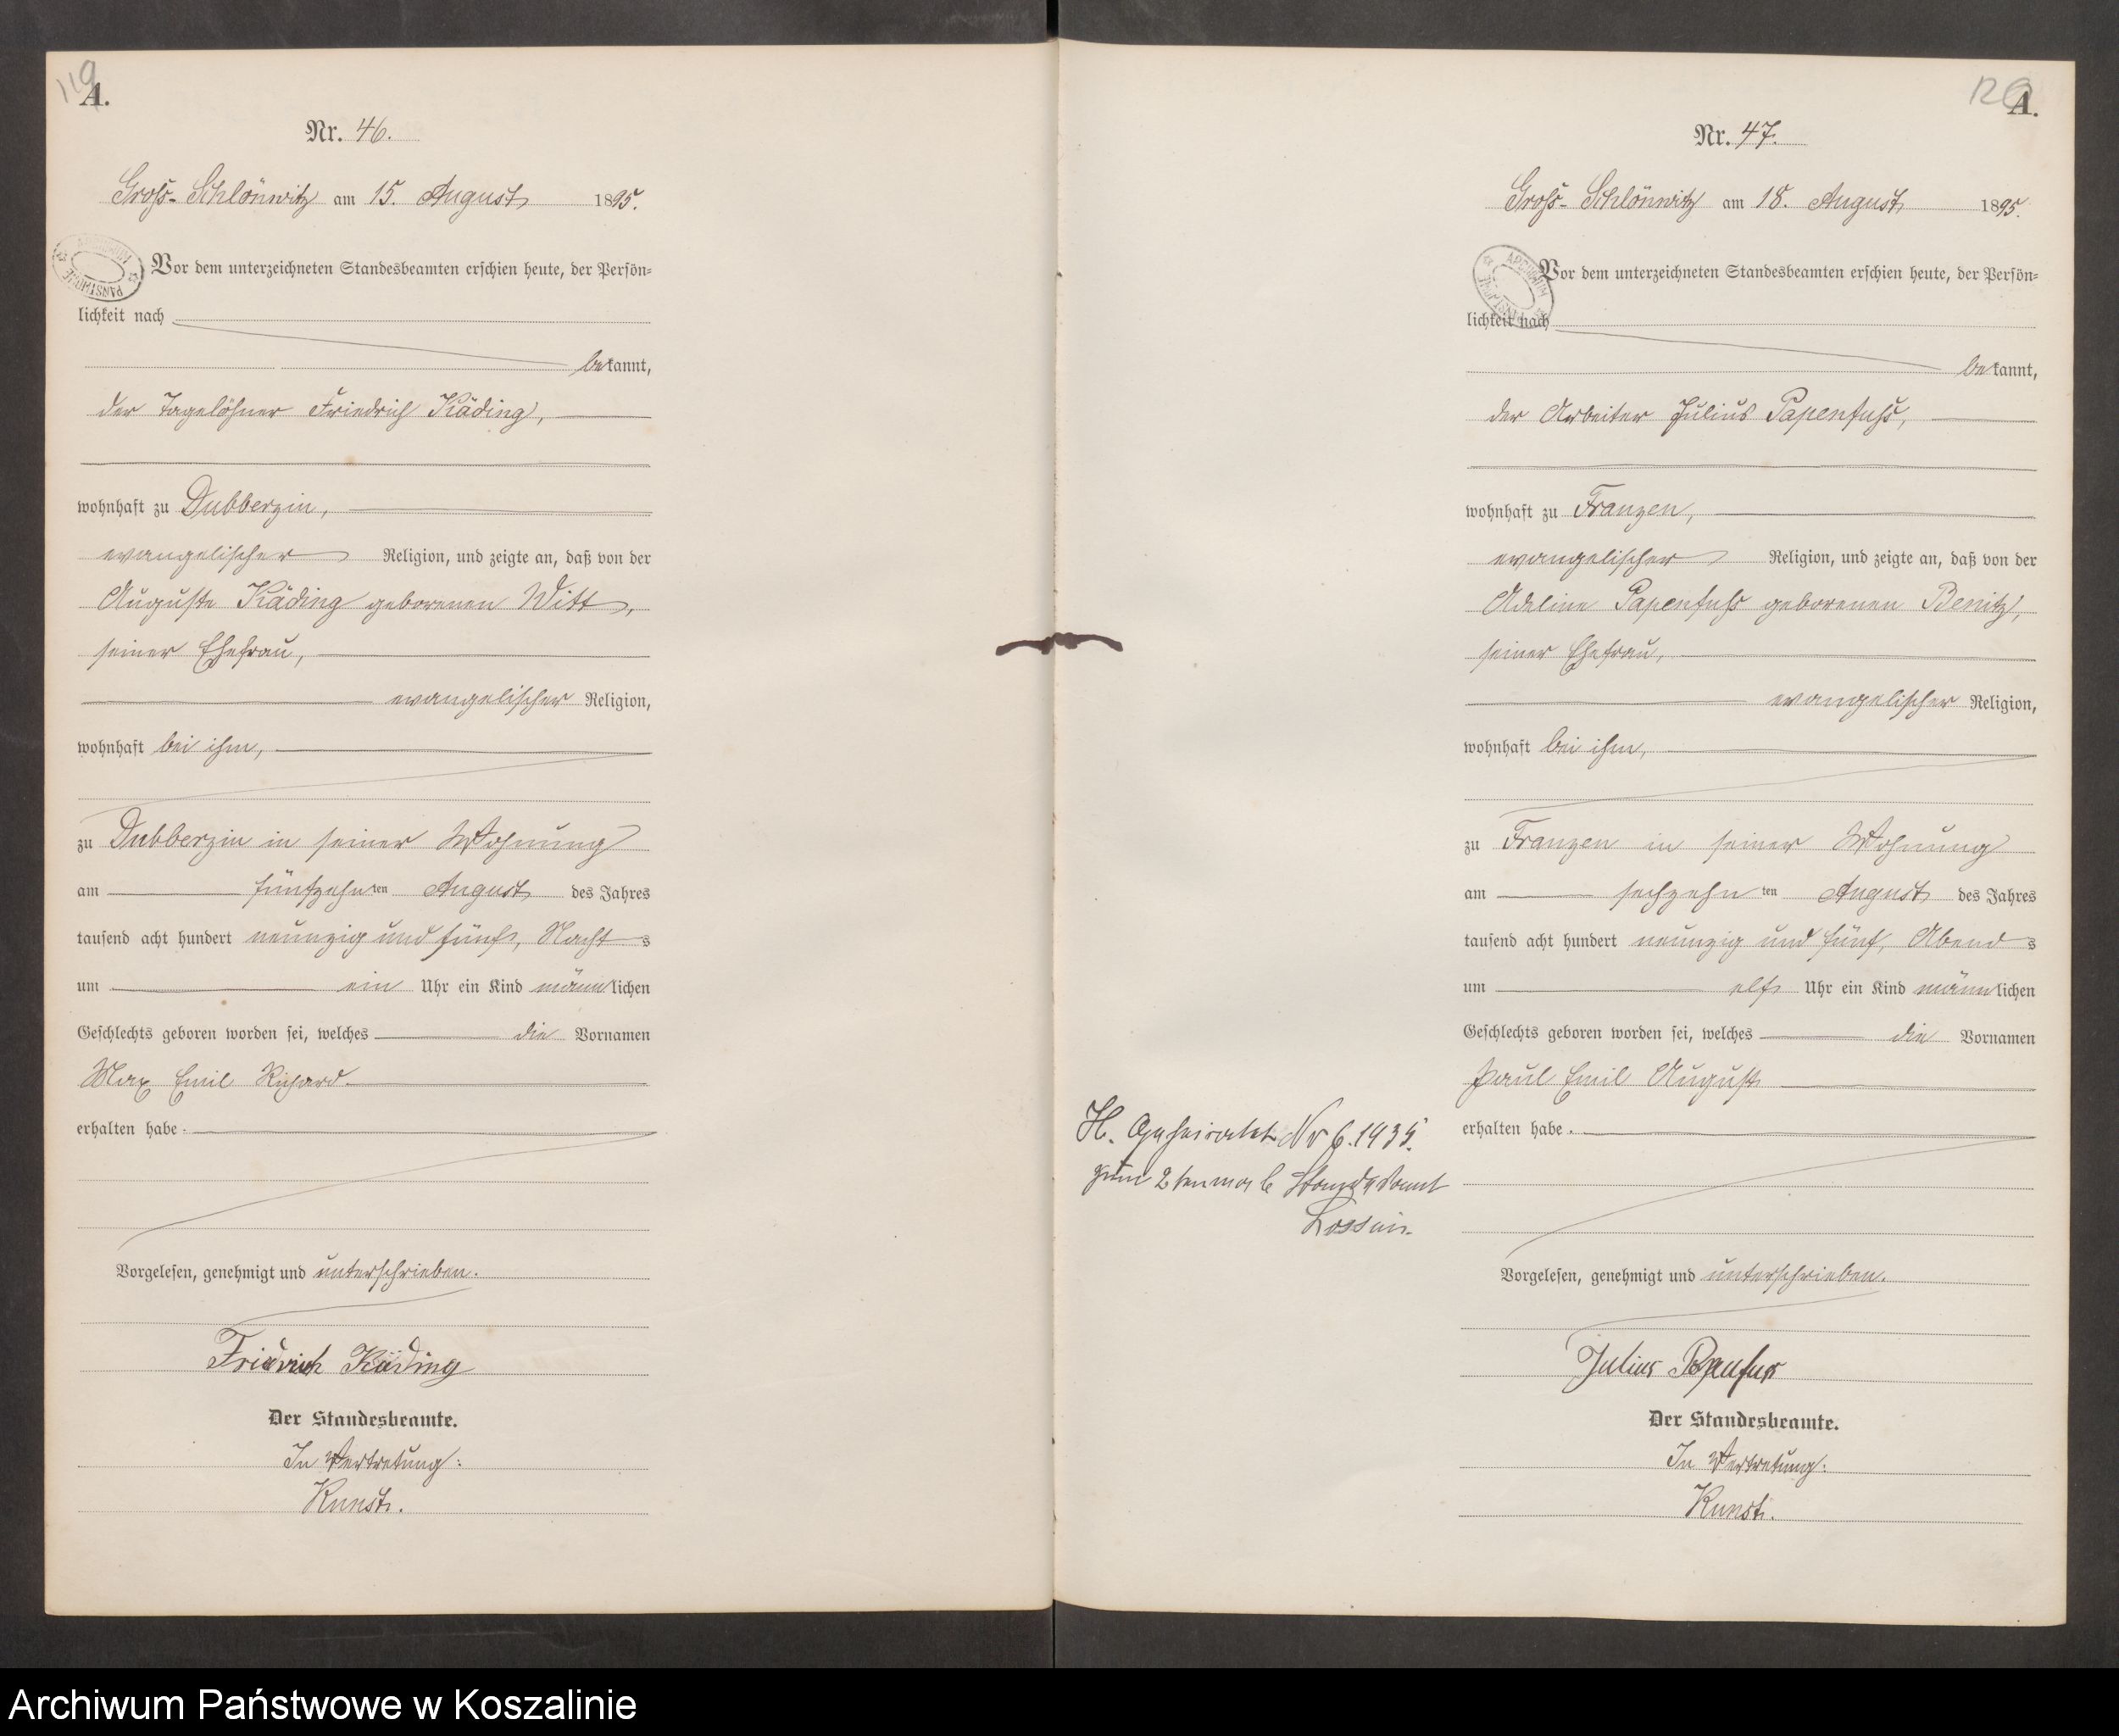 119
A.
Nr. 46.
Gross-Schlönwitz am 15. August 1895.
Vor dem unterzeichneten Standesbeamten erschien heute, der Persön-
lichkeit nach
bekannt,
der Tagelöhner Friedrich Käding,
wohnhaft zu Dubberzin,
evangelischer Religion, und zeigte an, daß von der
Auguste Käding geborenen Witt,
seiner Ehefrau,
evangelischer Religion,
wohnhaft bei ihm,
zu Dubberzin in seiner Wohnung
am fünfzehnten August des Jahres
tausend acht hundert neunzig und fünf, Nachts
um ein Uhr ein Kind männlichen
Geschlechts geboren worden sei, welches die Vornamen
Max Emil Richard
erhalten habe.
Vorgelesen, genehmigt und unterschrieben.
Friedrich Käding
Der Standesbeamte.
In Vertretung:
Kunst.
120
A.
Nr. 47.
Gross-Schlönwitz am 18. August 1895.
ARCHIWUM
Vor dem unterzeichneten Standesbeamten erschien heute, der Persön-
lichkeit nach
bekannt,
der Arbeiter Julius Papenfuss,
wohnhaft zu Franzen,
evangelischer Religion, und zeigte an, daß von der
Adeline Papenfuss geborenen Benitz,
seiner Ehefrau,
evangelischer Religion,
wohnhaft bei ihm,
zu Franzen in seiner Wohnung
am sechzehnten August des Jahres
tausend acht hundert neunzig und fünf, Abends
um elf Uhr ein Kind männlichen
Geschlechts geboren worden sei, welches die Vornamen
Paul Emil August
erhalten habe.
H. Geheiratet Nr 6. 1935.
zum 2ten male Standesamt
Lossin
Vorgelesen, genehmigt und unterschrieben.
Julius Papenfus
Der Standesbeamte.
In Vertretung:
Kunst.
Archiwum Państwowe w Koszalinie